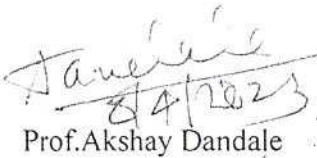 8/4/2023
Prof.Akshay Dandale